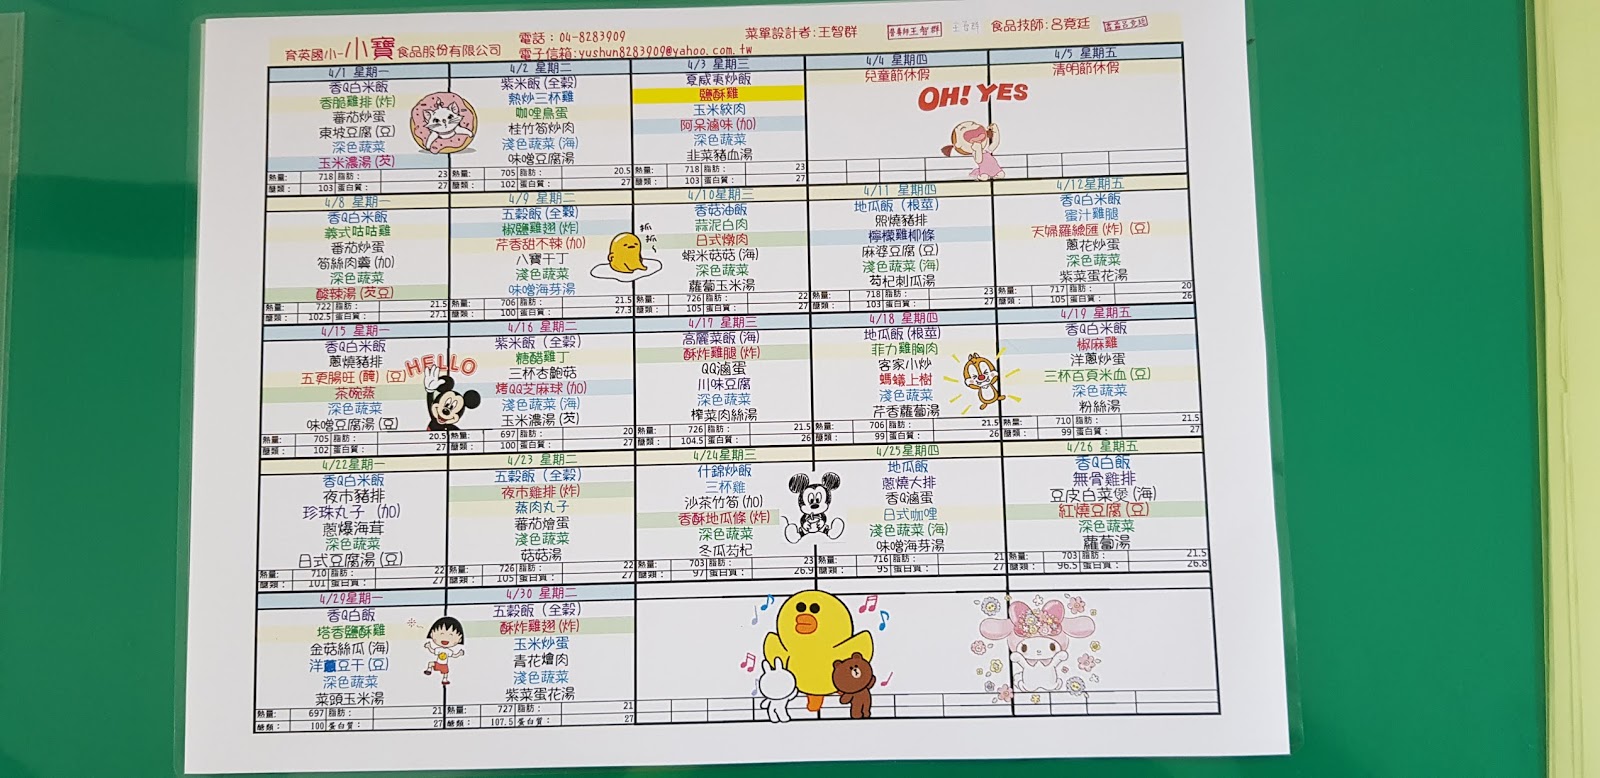 育英國小-小寶食品股份有限公司
電話：04-8283909
電子信箱:yushun8283909@yahoo.com.tw
菜單設計者:王智群
食品技師:呂竟廷
4/1 星期一
香Q白米飯
香脆雞排(炸)
蕃茄炒蛋
東坡豆腐(豆)
深色蔬菜
玉米濃湯(芡)
熱量: 718 脂肪: 23
醣類: 103 蛋白質: 27
4/2 星期二
紫米飯(全穀)
熱炒三杯雞
咖哩鳥蛋
桂竹筍炒肉
淺色蔬菜(海)
味噌豆腐湯
熱量: 705 脂肪: 20.5
醣類: 102 蛋白質: 27
4/3 星期三
夏威夷炒飯
鹽酥雞
玉米絞肉
阿呆滷味(加)
深色蔬菜
韭菜豬血湯
熱量: 718 脂肪: 23
醣類: 103 蛋白質: 27
4/4 星期四
兒童節休假
4/5 星期五
清明節休假
OH! YES
4/8 星期一
香Q白米飯
義式咕咕雞
蕃茄炒蛋
筍絲肉羹(加)
深色蔬菜
酸辣湯(芡豆)
熱量: 722 脂肪: 21.5
醣類: 102.5 蛋白質: 27.1
4/9 星期二
五穀飯(全穀)
椒鹽雞翅(炸)
芹香甜不辣(加)
八寶干丁
淺色蔬菜
味噌海芽湯
熱量: 706 脂肪: 21.5
醣類: 100 蛋白質: 27.3
抓
抓
4/10星期三
香菇油飯
蒜泥白肉
日式燉肉
蝦米菇菇(海)
深色蔬菜
蘿蔔玉米湯
熱量: 726 脂肪: 22
醣類: 105 蛋白質: 27
4/11 星期四
地瓜飯(根莖)
照燒豬排
檸檬雞柳條
麻婆豆腐(豆)
淺色蔬菜(海)
芶杞刺瓜湯
熱量: 718 脂肪: 23
醣類: 103 蛋白質: 27
4/12星期五
香Q白米飯
蜜汁雞腿
天婦羅總匯(炸)(豆)
蔥花炒蛋
深色蔬菜
紫菜蛋花湯
熱量: 717 脂肪: 20
醣類: 105 蛋白質: 26
4/15 星期一
香Q白米飯
蔥燒豬排
五更腸旺(醃)(豆)
茶碗蒸
深色蔬菜
味噌豆腐湯(豆)
熱量: 705 脂肪: 20.5
醣類: 102 蛋白質: 27
HELLO
4/16 星期二
紫米飯(全穀)
糖醋雞丁
三杯杏鮑菇
烤QQ芝麻球(加)
淺色蔬菜(海)
玉米濃湯(芡)
熱量: 697 脂肪: 20
醣類: 100 蛋白質: 27
4/17 星期三
高麗菜飯(海)
酥炸雞腿(炸)
QQ滷蛋
川味豆腐
深色蔬菜
榨菜肉絲湯
熱量: 726 脂肪: 21.5
醣類: 104.5 蛋白質: 26
4/18 星期四
地瓜飯(根莖)
菲力雞胸肉
客家小炒
螞蟻上樹
淺色蔬菜
芹香蘿蔔湯
熱量: 706 脂肪: 21.5
醣類: 99 蛋白質: 26
4/19 星期五
香Q白米飯
椒麻雞
洋蔥炒蛋
三杯百頁米血(豆)
深色蔬菜
粉絲湯
熱量: 710 脂肪: 21.5
醣類: 99 蛋白質: 27
4/22星期一
香Q白米飯
夜市豬排
珍珠丸子 (加)
蔥爆海茸
深色蔬菜
日式豆腐湯(豆)
熱量: 710 脂肪: 22
醣類: 101 蛋白質: 27
4/23 星期二
五穀飯(全穀)
夜市雞排(炸)
蒸肉丸子
蕃茄燴蛋
淺色蔬菜
菇菇湯
熱量: 726 脂肪: 22
醣類: 105 蛋白質: 27
4/24星期三
什錦炒飯
三杯雞
沙茶竹筍(加)
香酥地瓜條(炸)
深色蔬菜
冬瓜芶杞
熱量: 703 脂肪: 23
醣類: 97 蛋白質: 26.9
4/25星期四
地瓜飯
蔥燒大排
香Q滷蛋
日式咖哩
淺色蔬菜(海)
味噌海芽湯
熱量: 716 脂肪: 21
醣類: 95 蛋白質: 27
4/26 星期五
香Q白飯
無骨雞排
豆皮白菜煲(海)
紅燒豆腐(豆)
深色蔬菜
蘿蔔湯
熱量: 703 脂肪: 21.5
醣類: 96.5 蛋白質: 26.8
4/29星期一
香Q白飯
塔香鹽酥雞
金菇絲瓜(海)
洋蔥豆干(豆)
深色蔬菜
菜頭玉米湯
熱量: 697 脂肪: 21
醣類: 100 蛋白質: 27
4/30 星期二
五穀飯(全穀)
酥炸雞翅(炸)
玉米炒蛋
青花燴肉
淺色蔬菜
紫菜蛋花湯
熱量: 727 脂肪: 21
醣類: 107.5 蛋白質: 27